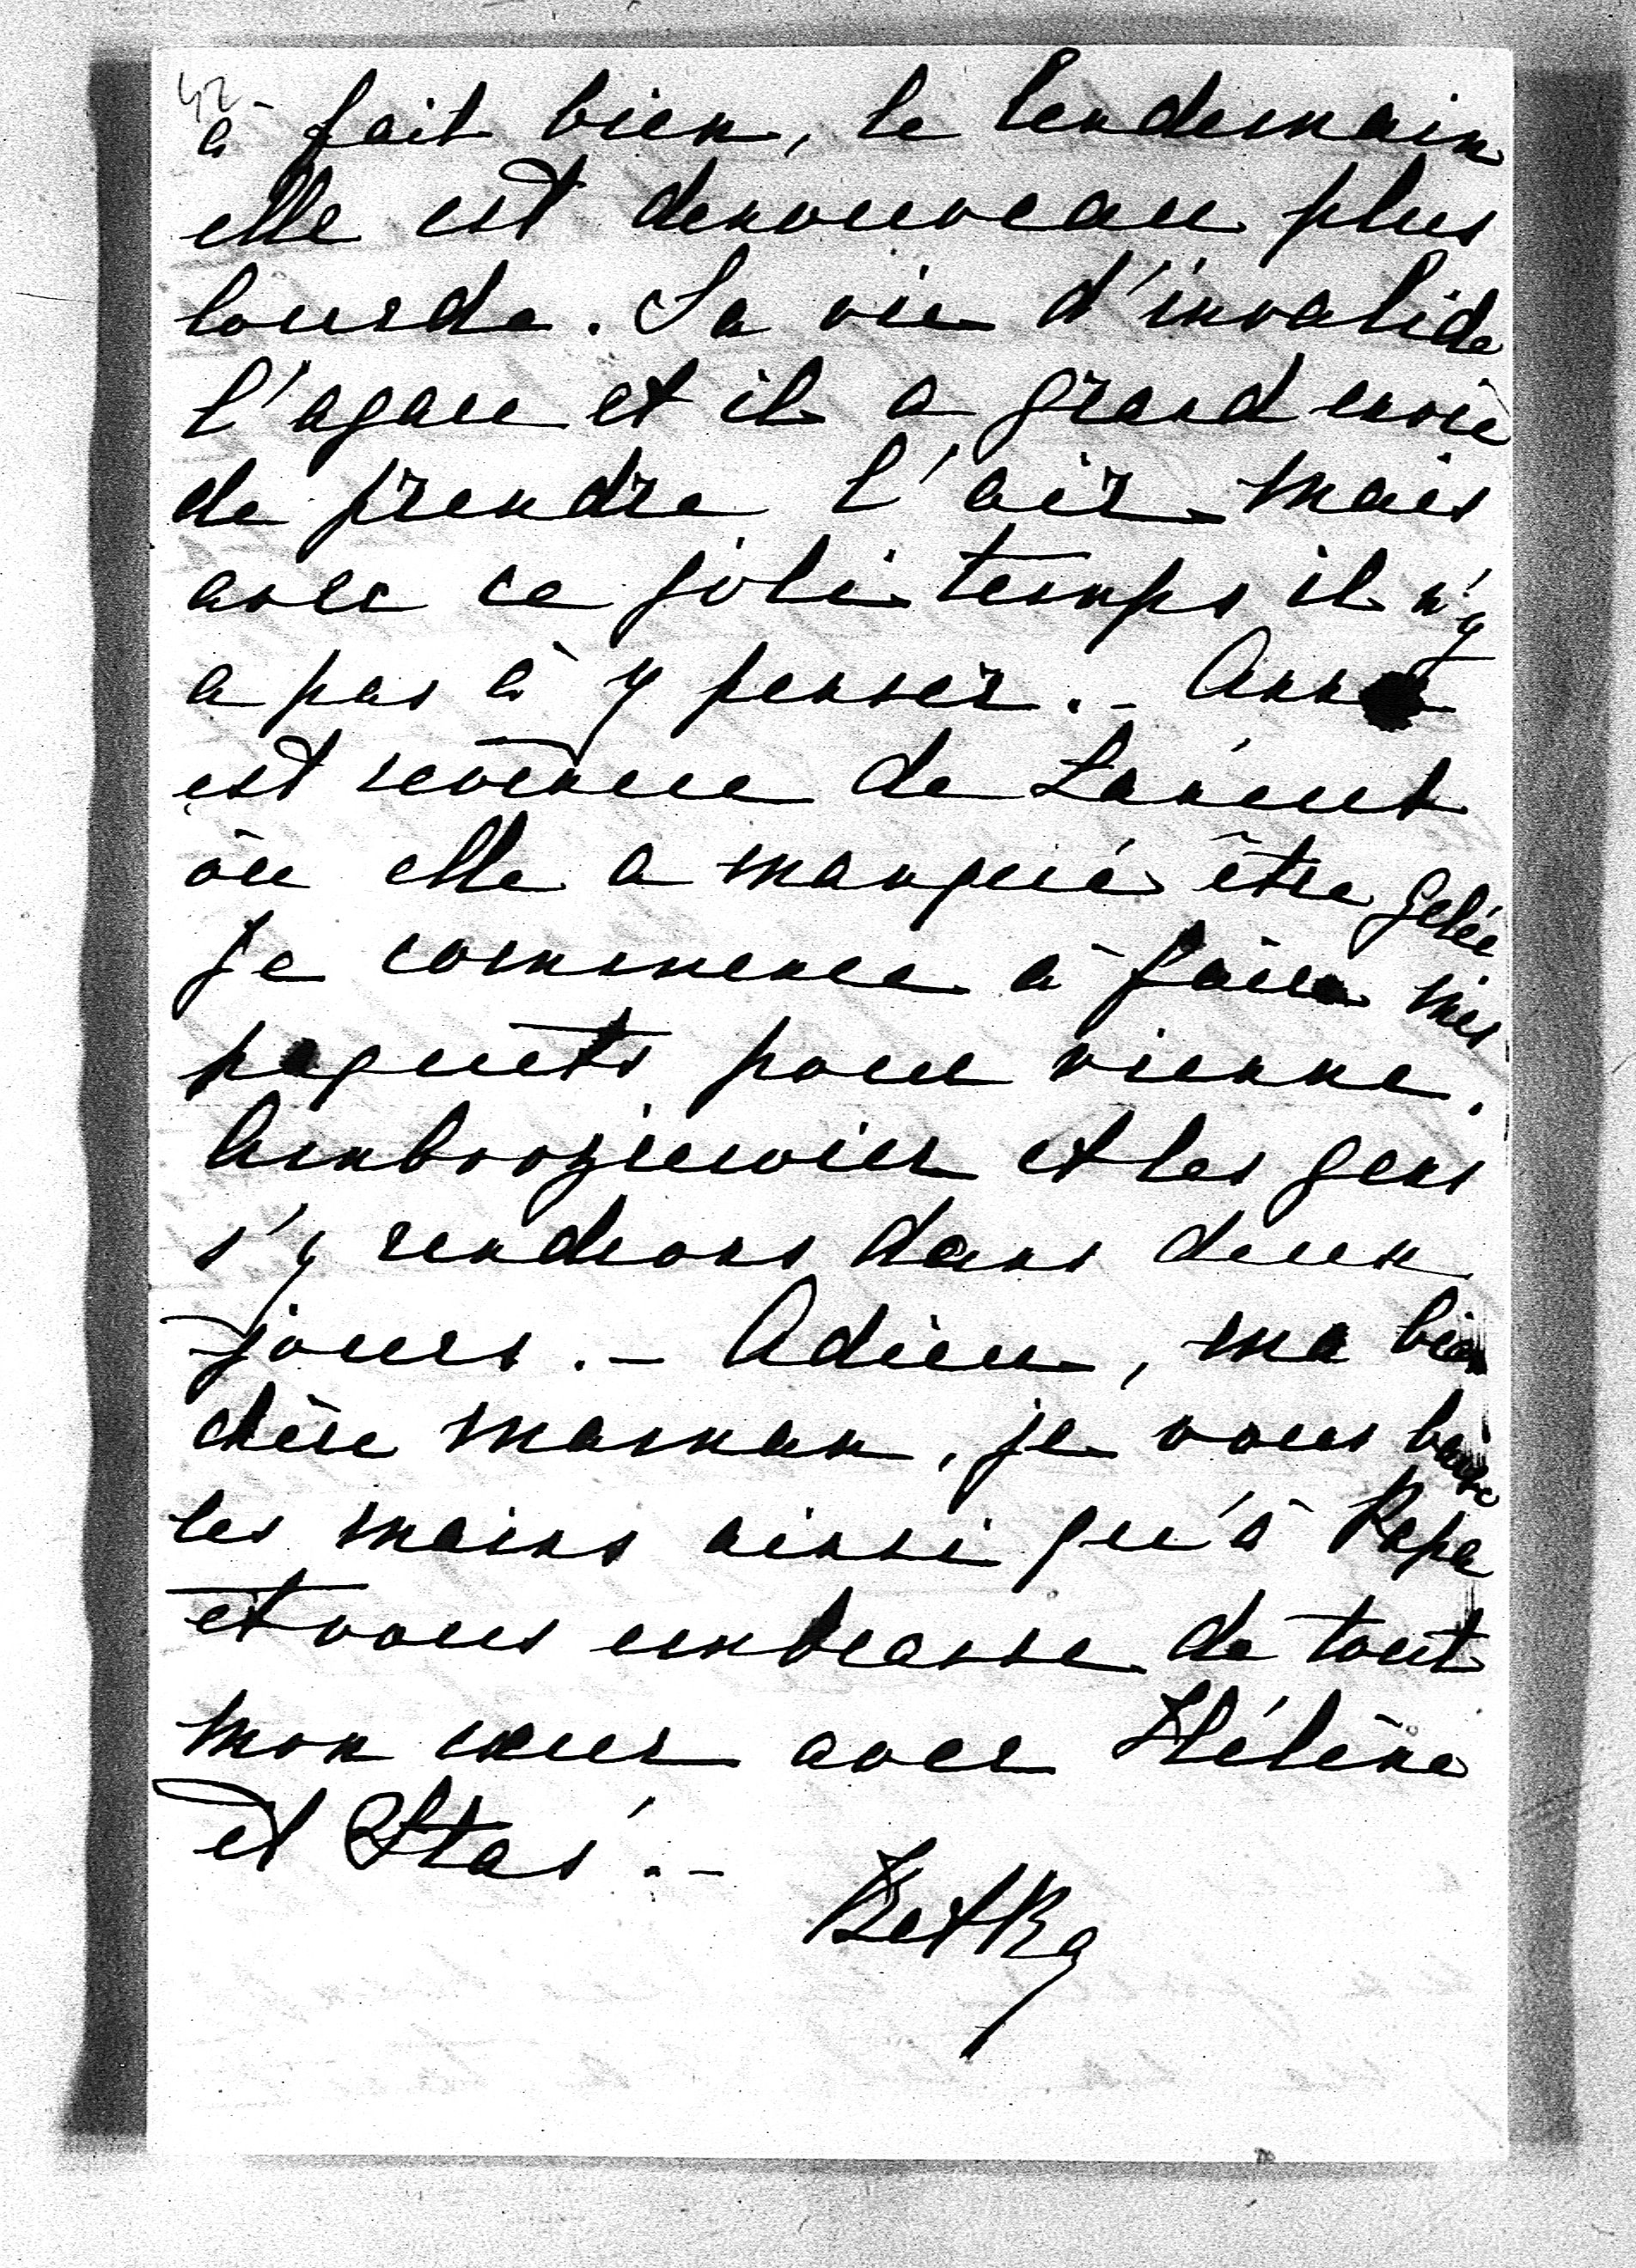 42
à fait bien, le lendemain
elle est denouveau plus
lourde. Sa vie d'invalide
l'agace et il a grand envie
de prendre l'air mais
avec ce joli temps il n'y
a pas à y penser. - Anna
est revenue de Łańcut
où elle a manqué être gelée
Je commence à faire mes
paquets pour vienne.
et les gens
s'y rendrons dans deux
jours. - Adieu, ma bien
chère maman, je vous baise
les mains ainsi qu'à Papa
et vous embrasse de tout
mon cœur avec Hélène
et Staś. -
Betka